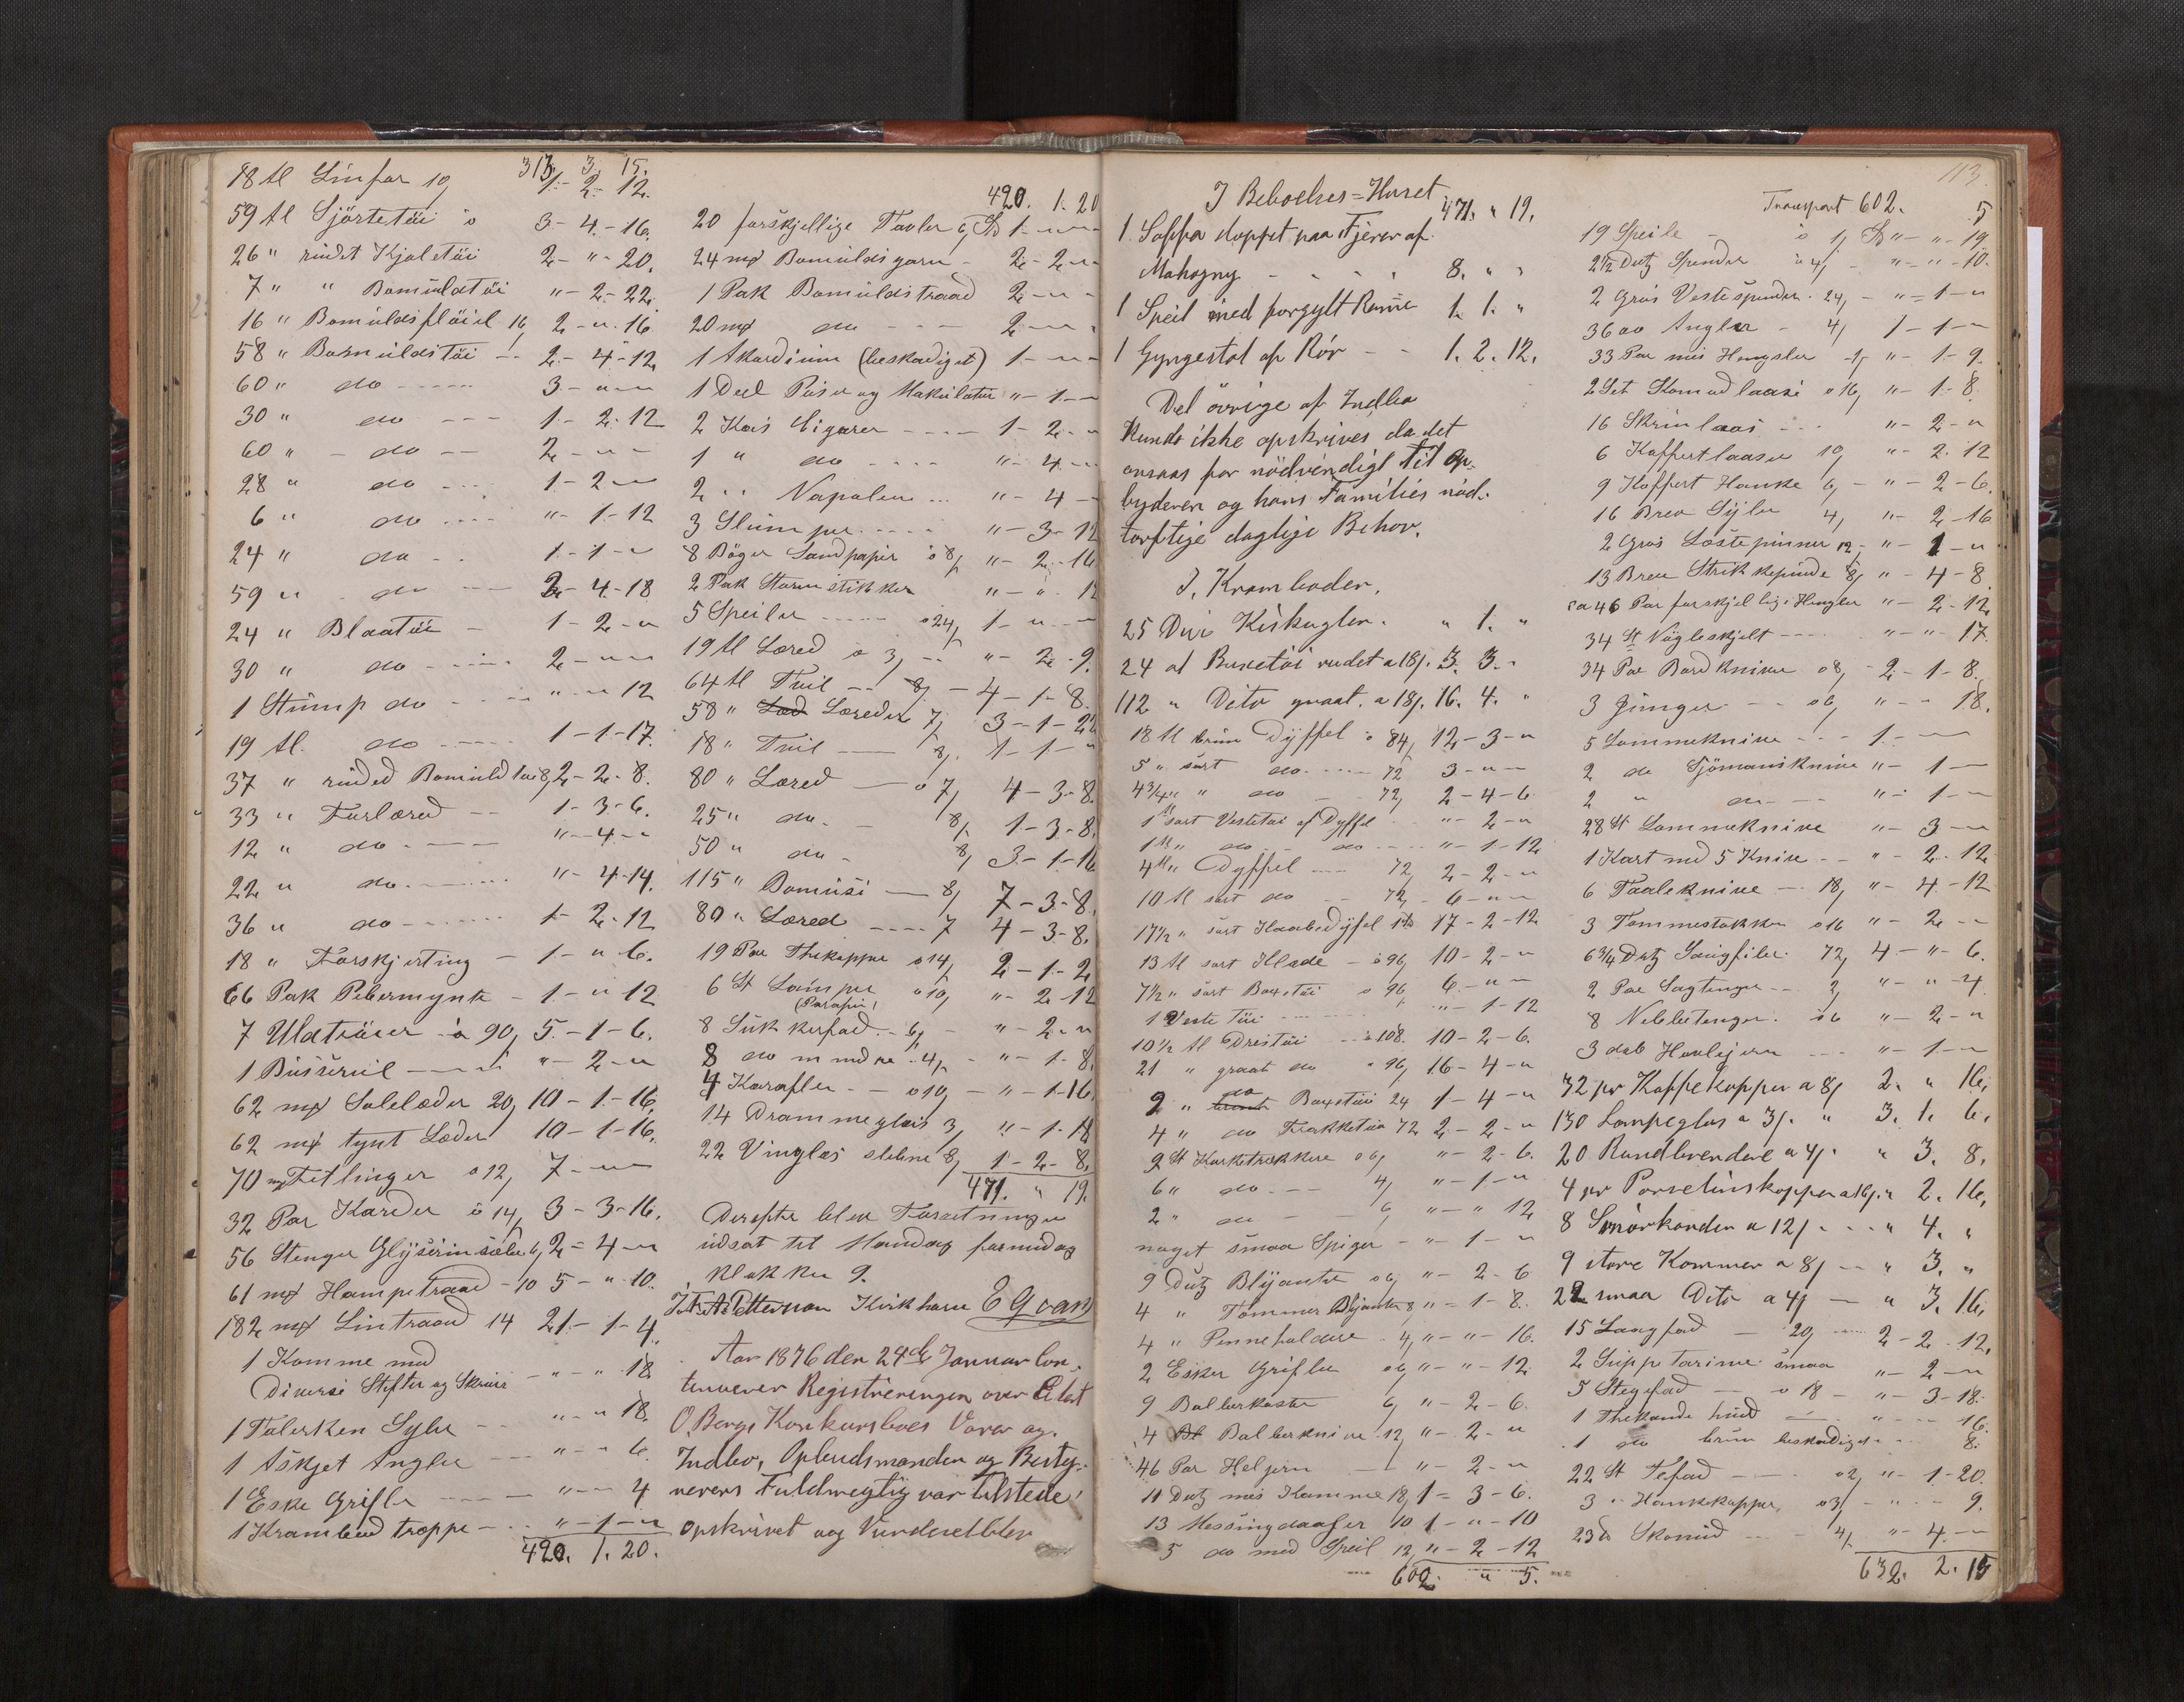 313. 3. 15.
18 Al Linfor 10, 1 - 2 - 12.
59 Al Sjörtetöi à 3 - 4 - 16.
26 " rudet Kjoletöi 2 - " - 20.
7 " " Bomuldstöi " - 2 - 22.
16 " Bomuldsflöiel 16, 2 - " - 16
58 " Bomuldstöi - 2 - 4 - 12,
60 " do 3 - " - "
30 " do 1 - 2 - 12
60 " do 2 - " - "
28 " do 1 - 2 - "
6 " do " - 1 - 12
24 " do 1 - 1 - "
59 " do 2 - 4 - 18
24 " Blaatöi 1 - 2 - "
30 " do 2 - " - "
1 Stump do " - " 12
19 Al. do 1 - 1 - 17.
37 " ruded Bomuldtöi 8, 2 - 2 - 8.
33 " Forlæred 1 - 3 - 6.
12 " do " - 4 - "
22 " do " - 4 - 14.
36 " do 1 - 2 - 12
18 " Forskjerting 1 - " - 6.
66 Pak Pebermynte 1 - " 12
7 Uldtröier à 90, 5 - 1 - 6.
1 Buseruil " - 2 - "
62 mK Solelæder 20, 10 - 1 - 16,
62 mK tynt Læder 10 - 1 - 16.
70 mK Fetlinger à 12, 7 - " "
32 Par Karder à 14, 3 - 3 - 16.
56 Stenger Glyserinsæbe 6, 2 - 4 - "
61 mK Hampetraad - 10 5 - " 10.
182 mK Lintraad 14 21 - 1 - 4.
1 Komme med
Diverse Stifter og Skruer " - " 18
1 Talerken Syler " - " 18.
1 Askjet Angler " - " 6
1 Eske Grifler " - " 4
1 Krambod troppe " - 1 - "
420. 1. 20.
420. 1. 20
20 forskjellige Tavler 6, Sp 1 - " - "
24 mK Bomuldsgarn - 2 - 2 - "
1 Pak Bomuldstraad 2 - " -
20 mK do 2 - "
1 Akordium (beskadiget) 1 - " - "
1 Deel Poser og Makulatur " - 1 - "
2 Kas Sigarer 1 - 2 - "
1 " do " - 4 - "
2 " Napoleon " - 4 -
3 Slumper " - 3 - 12
8 Böger Sandpapir à 8, " - 2 - 16
2 Pak Stormstikker " - " - 12
5 Speiler à 24, 1 - " - "
19 Al Læred à 3, " - 2 - 9.
64 Al Tvil 8, - 4 - 1 - 8.
58 " Læreder 7, 3 - 1 - 22
18 " Tvil 8, 1 - 1 - "
80 " Læred à 7, 4 - 3 - 8.
25 " do 8, 1 - 3 - 8.
50 " do 8, 3 - 1 - 16
115 " Bomusi 8, 7 - 3 - 8.
80 " Læred 7 4 - 3 - 8.
19 Par Thekopper à 14, 2 - 1 - 2
6 St Lamper à 10, " - 2 - 12
(Parafin)
8 Sukkerfad 6, " - 2 - "
8 do mindre 4, " - 1 - 8.
4 Karafler à 10, " - 1 - 16
14 Drammeglas 3, " - 1 - 18
22 Vinglas slebne 8, 1 - 2 - 8.
471. " 19.
Derefter blev Forretningen
udsat til Mandag formiddag
Klokken 9.
Petterson Kirkhorn
Aar 1876 den 24de Januar con-
tinuerer Registreringen over
O Bergs Konkursboes Varer og
Indbo, Opbudsmanden og Besty-
rerens Fuldmegtig var tilstede!
opskrivet og Vurderet blev
113.
I Beboelses=Huset
471. " 19.
1 Soffa stoppet paa Fjerer af
Mahogny 8. " "
1 Speil med forgylt Ramme 1. 1. "
1 Gyngestol af Rör 1. 2. 12.
Det övrige af Indbo
kunde ikke opskrives da det
ansaas for nödvendigt til Op-
byderen og hans Families nöd-
törftige daglige Behov.
I, Kramboden.
25 Dusi Kiskugler. " 1. "
24 al Buxetöi rudet a 18/. 3. 3. "
112 " Dito graat. a 18/. 16. 4. "
18 Al brun Dyffel à 84, 12 - 3 - "
5 " sort do 72 3 - " -
4 3/4 " " do 72, 2 - 4 - 6
1 " sort Vestetöi af Dyffel " - 2 - "
1 Al " do do " - 1 - 12
4 Al " Dyffel 72, 2 - 2 - "
10 Al sort do 72, 6 - " - "
17 1/2 " sort Dyfel 17 - 2 - 12
13 Al sort Klæde - à 96, 10 - 2 - "
7 1/2 " sort Boxetöi à 96 6 - " - "
1 Veste töi " - 1 - 12
10 1/2 Al Drestöi à 108. 10 - 2 - 6.
21 " graat do à 96, 16 - 4 - "
2 " do Boxetöi 24 1 - 4 - "
4 " do Frakketöi 72 2 - 2 - "
9 St Korketrækkere à 6, " - 2 - 6.
6 " do 4, " - 1 - "
2 " do 6, " - " 12
noget smaa Spiger " - 1 - "
9 Dutz Blyanter à 6, " - 2 - 6
4 " Tömmer Blyanter 8, " - 1 - 8.
4 " Penneholdere 4, " - " - 16.
2 Esker Grifler à 6, " - " - 12.
9 Balberkoster 6, " - 2 - 6.
4 Balberknive 12, " - 2 - "
46 Par Heljern " - 2 - "
11 Dutz mes Kamme 18, 1 - 3 - 6.
13 Messingdaaser 10 1 - " - 10
5 do med Speil 12, " - 2 - 12
602. " 5.
Transport 602. 5
19 Speile à 1, Sp " - " - 19.
2 1/2 Dutz Spender à 4, " - " - 10.
2 Gros Vestespender 24, " - 1 - "
36 00 Angler 4, 1 - 1 - "
33 Par mes Hengsler " - 1 - 9.
2 Set Komodlaase à 16, " - 1 - 8.
16 Skrinlaas " - 2 - "
6 Koffertlaase 10, " - 2 - 12
9 Koffert Hanke 6, " - 2 - 6.
16 Brev Syler 4, " - 2 - 16
2 Gros Læstepinner 12, " - 1 - "
13 Breve Strikkepinde 8, " - 4 - 8
ca 46 Par forskjellige Hengsler " - 2 - 12,
34 St Nögleskjelt " - " 17.
34 Par Bordknive à 8, 2 - 1 - 8.
3 Junger à 6, " - " 18.
5 Lommeknive 1 - "
2 do Sjömansknive " - 1 -
2 " do " - 1 - "
28 St Lommeknive " - 3 - "
1 Kart med 5 Knive " - 2 - 12
6 Taaleknive 18, " - 4 - 12
3 Tommestokker à 16 " - 2 - "
6 3/4 Dutz Saugfiler 72, 4 - " - 6.
2 Par Sagtenger 2, " - " - 4
8 Nebbetenger à 6 " - 2 - "
3 dob Hovljern " - 1 - "
32 pr Kaffekopper a 8/ 2. " 16,
130 Lampeglas a 3/. " 3. 1. 6.
20 Rundbrendere a 4/. " 3. 8.
4 pr Porselinskopper a 16/. " 2. 16,
8 Smörkander a 12/. " 4. "
9 store Kommer a 8/ " 3. "
22 smaa Dito a 4/ " 3. 16,
15 Langfad 20, 2 - 2 - 12,
2 Supptarine smaa " - 2 - "
5 Stegefad à 18 - " - 3 - 18.
1 Thekande hvid " - " 16.
1 do brun beskadiget 8.
22 St Tefad à 2, " - 1 - 20.
3 " Hankekopper à 3, " - 9.
23 do Skomid 4, " - 4 - "
632. 2. 15